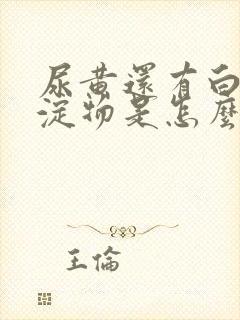 尿黃還有白
淀物是怎麼
王倫